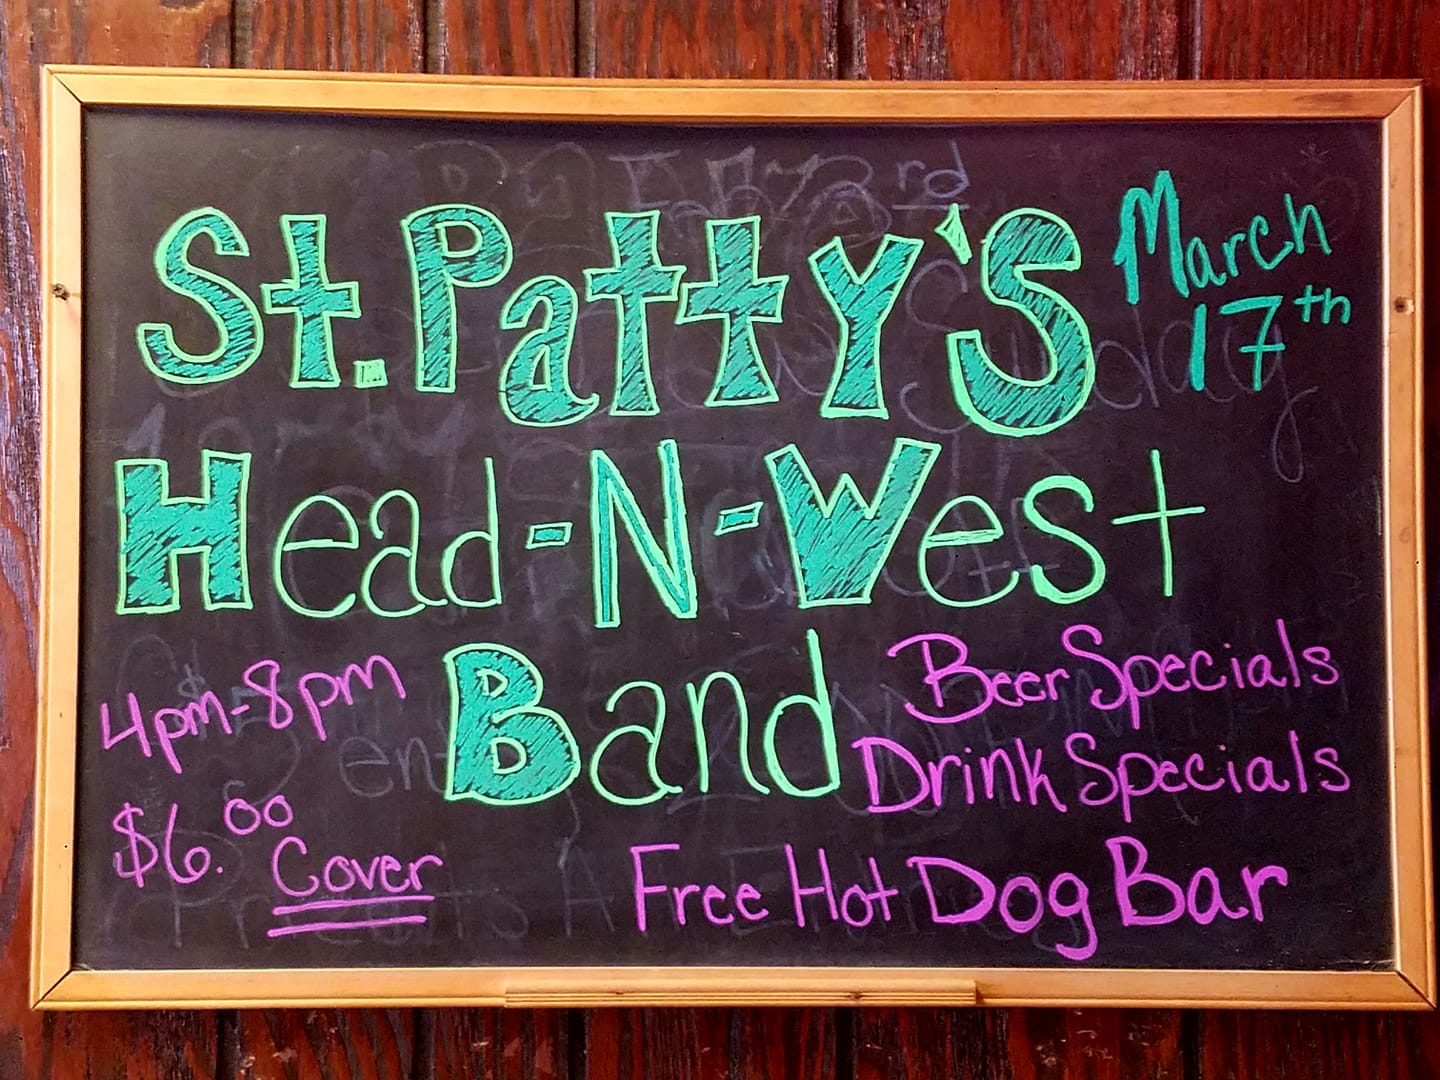 St. Patty's
March
17th
Head-N-West
Band
4pm-8pm
$6.00
Cover
Beer Specials
Drink Specials
Free Hot Dog Bar